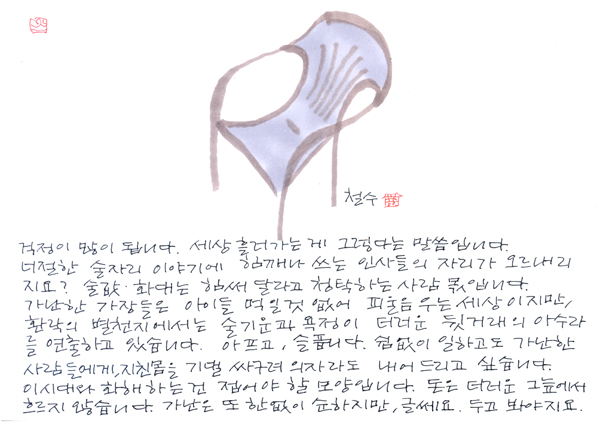 철수
걱정이 많이 됩니다. 세상 흘러가는 게 그렇다는 말씀입니다.
너절한 술자리 이야기에 힘깨나 쓰는 인사들의 자리가 오르내리
지요? 술값·화대는 힘써 달라고 청탁하는 사람 몫입니다.
가난한 가장들은 아이들 먹일것 없어 피울음 우는 세상이지만,
환락의 별천지에서는 술기운과 욕정이 더러운 뒷거래의 아수라
를 연출하고 있습니다. 아프고, 슬픕니다. 쉼없이 일하고도 가난한
사람들에게, 지친몸을 기댈 싸구려 의자라도 내어 드리고 싶습니다.
이시대와 화해하는건 접어야 할 모양입니다. 돈은 더러운 그늘에서
흐르지 않습니다. 가난은 또 한없이 순하지만, 글쎄요. 두고 봐야지요.